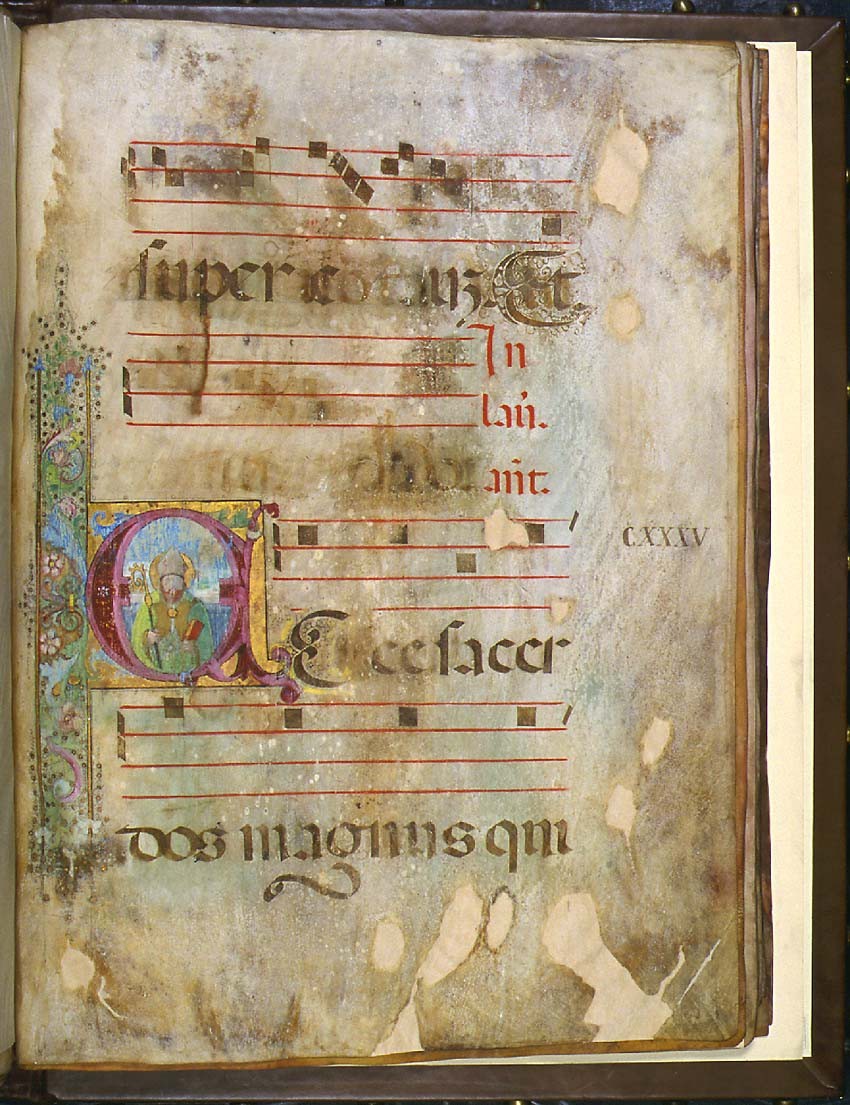 super Et
In
lau̅.
an̅t.
CXXXV
Ecce sacer
dos magnus qui